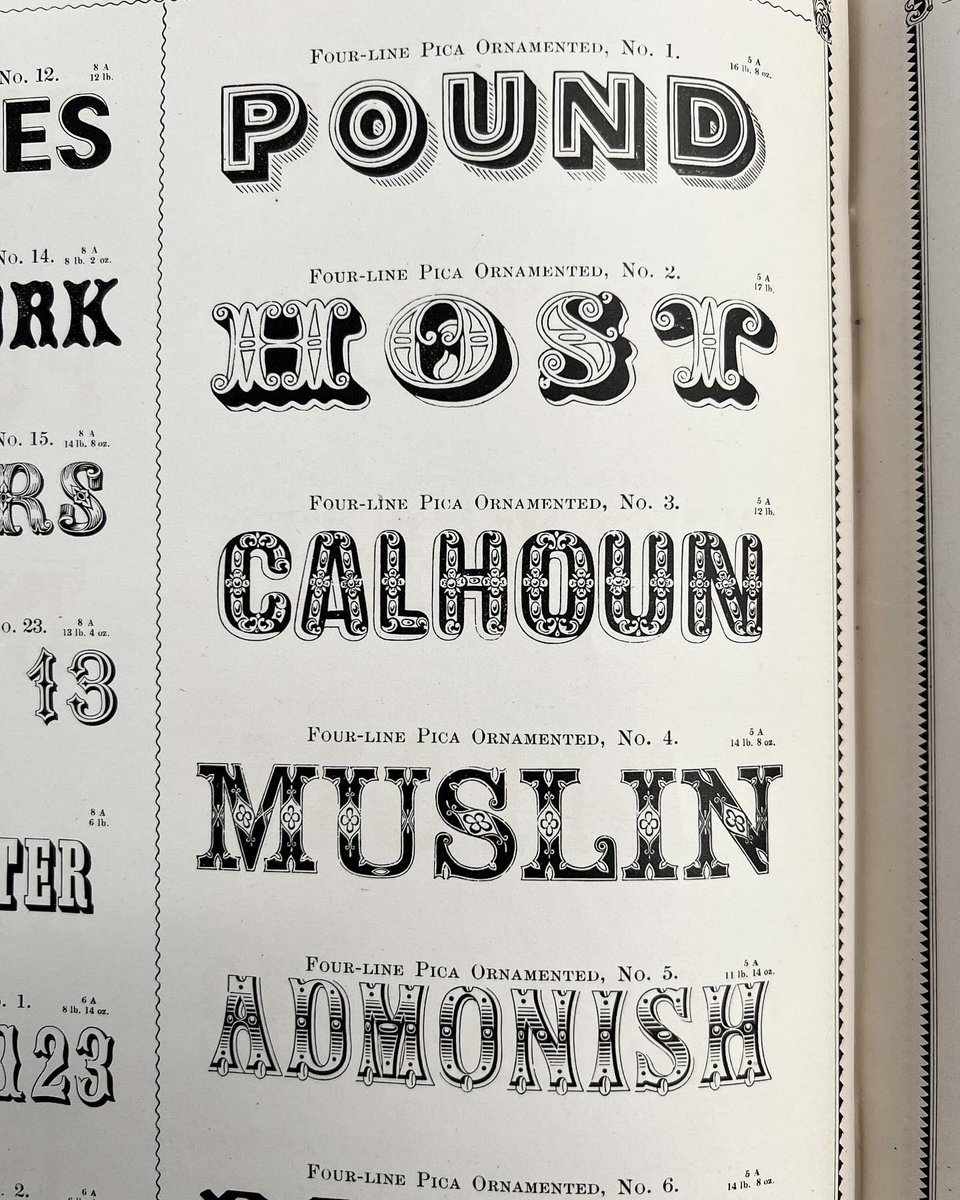 No. 12.
8 A
12 lb.
ES
No. 14.
8 A
8 lb. 2 oz.
RK
No. 15.
8 A
14 lb. 8 oz.
RS
o. 23.
8 A
13 lb. 4 oz.
13
8 A
6 lb.
TER
. 1.
6 A
8 lb. 14 oz.
123
. 2.
6 A
Four-line Pica Ornamented, No. 1.
5 A
16 lb. 8 oz.
POUND
Four-line Pica Ornamented, No. 2.
5 A
17 lb.
HOST
Four-line Pica Ornamented, No. 3.
5 A
12 lb.
CALHOUN
Four-line Pica Ornamented, No. 4.
5 A
14 lb. 8 oz.
MUSLIN
Four-line Pica Ornamented, No. 5.
5 A
11 lb. 14 oz.
ADMONISH
Four-line Pica Ornamented, No. 6.
5 A
14 lb. 8 oz.